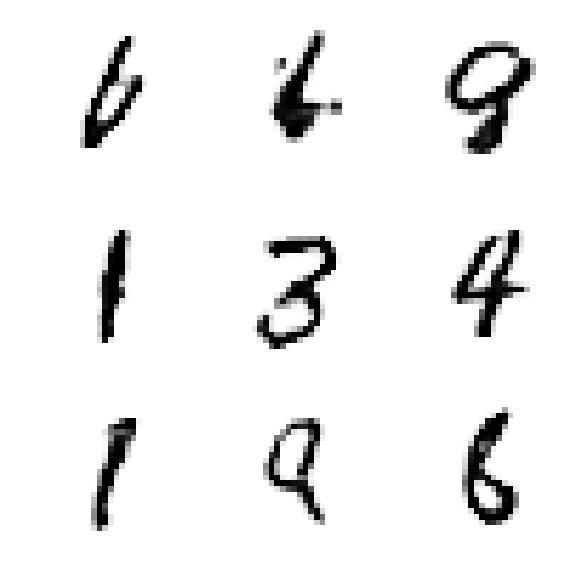 6 6 9
1 3 4
1 9 6